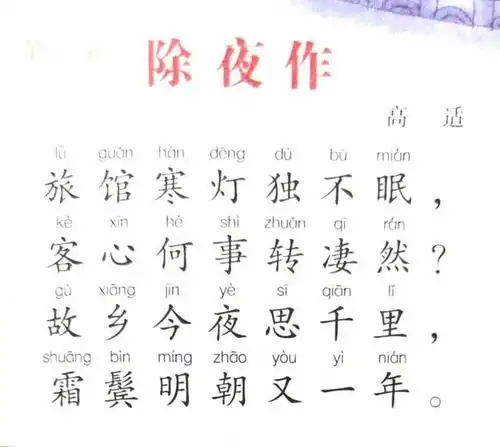 除夜作
高 适
lǚ guǎn hán dēng dú bù mián
旅馆寒灯独不眠，
kè xīn hé shì zhuǎn qī rán
客心何事转凄然？
gù xiāng jīn yè sī qiān lǐ
故乡今夜思千里，
shuāng bìn míng zhāo yòu yì nián
霜鬓明朝又一年。